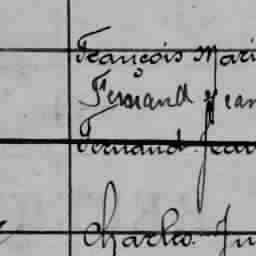 François Mari
Fernand Jean
Fernand Jean
Charles. Ju